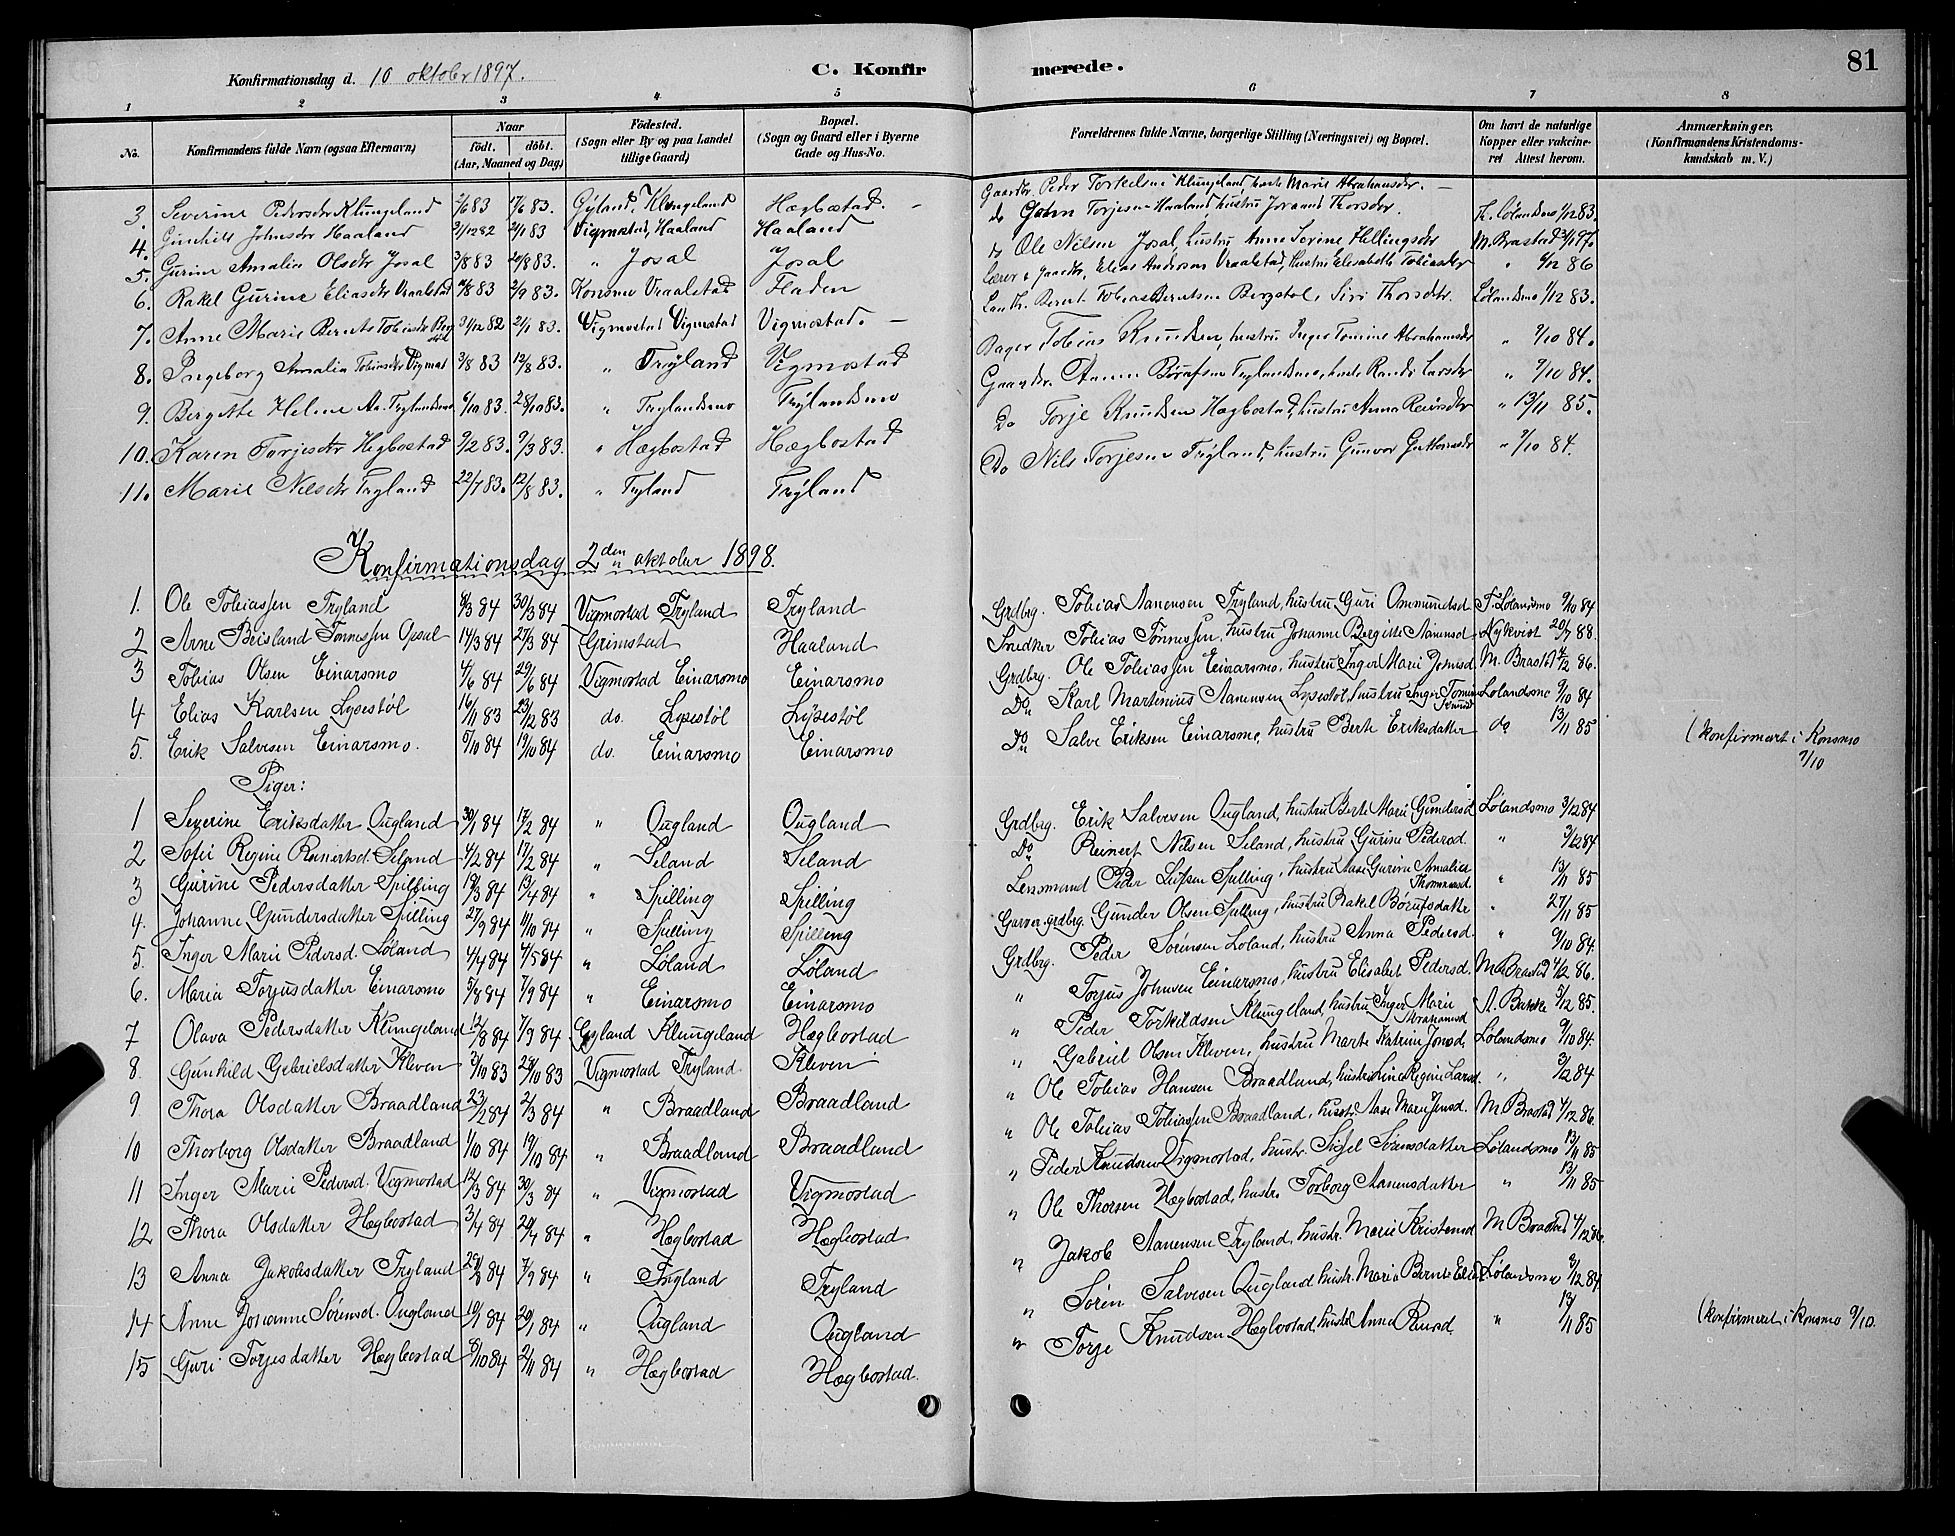 Konfirmationsdag d. 10 oktober 1897. C. Konfirmerede. 81
1 2 3 4 5 6 7 8
No. Konfirmandens fulde Navn (ogsaa Efternavn) Naar født. døbt. (Aar, Maaned og Dag) Fødested. (Sogn eller By og paa Landet tillige Gaard) Bopæl. (Sogn og Gaard eller i Byerne Gade og Hus-No. Forældrenes fulde Navne, borgerlige Stilling (Næringsvei) og Bopæl. Om havt de naturlige Kopper eller vakcineret Attest herom. Anmærkninger. (Konfirmandens Kristendomskundskab m. V.)
3. Severine Pedersdtr Klungeland 2/6 83 17/6 83. Gyland, Klungeland Hægbostad. Gaardbr. Peder Torkelsen Klungeland, Marie Abrahamsdtr. Th. Lølandsmo 1/12 83.
4. Gunhild Johnsdr Haaland 31/12 82 21/1 83 Vigmostad, Haaland Haaland do John Torjesen Haaland, hustru Joraand Thorsdtr. M. Brastad 3/1 97.
5. Gurine Amalia Olsdtr Josal 3/8 83 20/8 83. " Josal Josal do Ole Nilsen Josal, hustru Anne Serine Hellingsdtr " 4/12 86
6. Rakel Gurine Eliasdtr Vraalstad 11/8 83 2/9 83. Konsmo Vraalstad Fladen Lærer & gaardbr. Elias Andersen Vraalstad, hustru Elisabeth Tobiasdtr Lølandsmo 1/12 83.
7. Anne Marie Bernts Tobiasdtr Bergstøl 31/12 82 21/1 83. Vigmostad Vigmostad Vigmostad. Landh. Bernt Tobias Berntsen Bergstøl, Siri Thorsdtr. " 9/10 84.
8. Ingeborg Amalia Tobiasdtr Vigmost 3/8 83 12/8 83. " Tryland Vigmostad Bager Tobias Knudsen, hustru Inger Tomine Abrahamsdtr " 9/10 84.
9. Bergitte Helene Aa. Trylandsmo 6/10 83. 28/10 83. " Trylandsmo Trylandsmo Gaardbr. Aanen Børufsen Trylandsmo, Randi Larsdtr " 13/11 85.
10. Karen Torjesdtr Hegbostad 9/2 83. 9/3 83. " Hægbostad Hægbostad Do Torje Knudsen Hægbostad, hustru Anna Reiersdtr " 9/10 84.
11. Marie Nilsdtr Tryland 22/7 83. 12/8 83. " Tryland Tryland Do Nils Torjesen Tryland, hustru Gunvor
Konfirmationsdag 2den oktober 1898.
1. Ole Tobiassen Tryland 8/3 84 30/3 84 Vigmostad Tryland Tryland Grdbrg. Tobias Aanensen Tryland, hustru Guri Ommundsd. T. Lølandsmo 9/10 84
2 Arne Brisland Tønnessen Opsal 14/3 84 27/3 84 Grimstad Haaland Snedker Tobias Tønnessen, hustru Johanne Bergitte Aanensd. Nykvist 20/7 88.
3 Tobias Olsen Einarsmo 4/6 84 29/6 84 Vigmostad Einarsmo Einarsmo Grdbrg. Ole Tobiassen Einarsmo, hustru Inger Marie Jonsd. M. Brastad 4/12 86.
4 Elias Karlsen Lysestøl 16/11 83 23/12 83 do. Lysestøl Lysestøl Do Karl Martenius Aanensen Lysestøl, hustru Inger Tomine Knudsd Lølandsmo 9/10 84
5. Erik Salvesen Einarsmo. 5/10 84 19/10 84 do. Einarsmo Einarsmo Do Salve Eriksen Einarsmo, hustru Berte Eriksdatter do 13/11 85 (konfirmert i Konsmo 9/10
Piger:
1 Severine Eriksdatter Ougland 30/1 84 17/2 84 " Ougland Ougland Grdbrg. Erik Salvesen Ougland, hustru Berte Marie Gundersd. Lølandsmo 3/12 84
2 Sofie Regine Reinertsd. Seland 4/2 84 17/2 84 " Seland Seland Do Reinert Nilsen Seland, hustru Gurine Pedersd. " 3/12 84
3 Gurine Pedersdatter Spilling 19/3 84 13/4 84 " Spilling Spilling Lensmand Peder Spilling, hustru Aase Gurine Amalia Thommasd. " 13/11 85
4. Johanne Gundersdatter Spilling 27/9 84 11/10 84 " Spilling Spilling Garver, grdbrg. Gunder Olsen Spilling, hustru Rakel Børufsdatter " 27/11 85
5. Inger Marie Pedersd. Løland 4/4 84 4/5 84 " Løland Løland Grdbrg. Peder Sørensen Løland, hustru Anna Pedersd. " 9/10 84.
6. Maria Torjusdatter Einarsmo 5/8 84 7/9 84 " Einarsmo Einarsmo " Torjus Johnsen Einarsmo, hustru Elisabet Pedersd. M. Brastad 4/12 86.
7 Olava Pedersdatter Klungeland 12/8 84 7/9 84 Gyland Klungeland Hægbostad " Peder Torkildsen Klungeland, hustru Inger Marie Abrahamsd. A. Bakke 5/12 85.
8. Gunhild Gabrielsdatter Kleven 3/10 83 28/10 83 Vigmostad Tryland Kleven " Gabriel Olsen Kleven, hustru Marte Katrine Jonsd. Lølandsmo 9/10 84.
9 Thora Olsdatter Braadland 23/2 84 2/3 84 " Braadland Braadland " Ole Tobias Hansen Braadland, hustru Line Regine Larsd. " 3/12 84
10 Thorborg Olsdatter Braadland 1/10 84 19/10 84 " Braadland Braadland " Ole Tobias Tobiassen Braadland, hustr. Aase Marie Jensd. M. Brastad 4/12 86.
11 Inger Marie Pedersd. Vigmostad 12/3 84 30/3 84 " Vigmostad Vigmostad " Peder Knudsen Vigmostad, hustr. Sissel Sørensdatter Lølandsmo 13/11 85
12 Thora Olsdatter Hægbostad 3/4 84 20/4 84 " Hægbostad Hægbostad " Ole Thorsen Hægbostad, hustr. Torborg Aanensdatter " 13/11 85
13 Anna Jakobsdatter Tryland 7/9 84 " Tryland Tryland " Jakob Aanensen Tryland, hustr. Marie Kristensd M Brastad 4/12 86.
14 Anne Johanne Sørensd. Ougland 10/1 84 20/1 84 " Ougland Ougland " Søren Salvesen Ougland, hustr. Maria Bernte Lølandsmo 3/12 84.
15 Guri Torjesdatter Hægbostad 8/10 84 2/11 84 " Hægbostad Hægbostad. " Torje Knudsen Hægbostad, hustr. Anna " 13/11 85 (konfirmert i Konsmo 9/10.